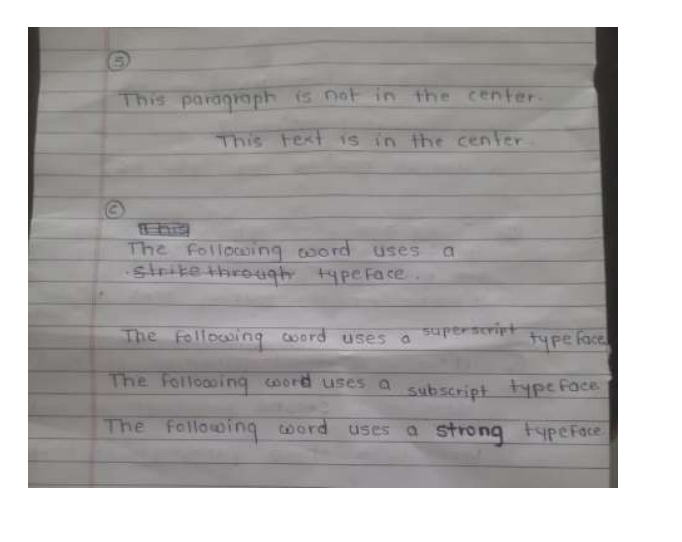 5
This paragraph is not in the center.
This text is in the center.
The following word uses a
strikethrough typeface.
The following word uses a superscript typeface
The following word uses a subscript typeface.
The following word uses a strong typeface